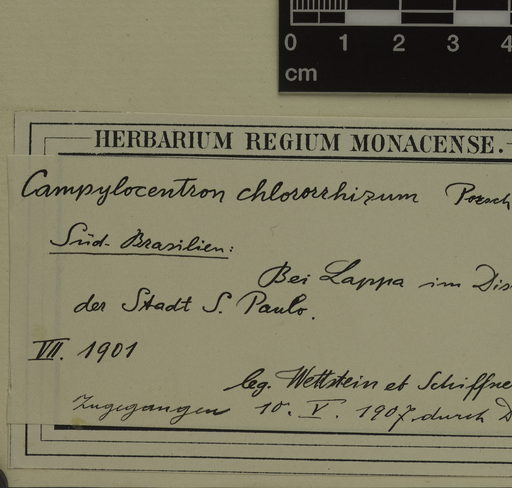 0 1 2 3 4
cm
HERBARIUM REGIUM MONACENSE.
Campylocentron chlororrhizum Porsch
Süd-Brasilien:
Bei Lappa im Dis
der Stadt S. Paulo.
VII. 1901
leg. Wettstein et Schiffne
Zugegangen 10. V. 1907 durch D